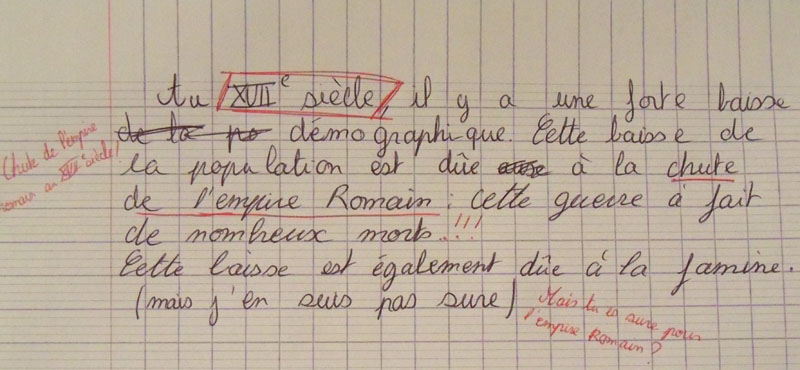 Au XVIIe siècle, il y a une forte baisse
de la po démographique. Cette baisse de
la population est dûe à la chute
de l'empire Romain : cette guerre à fait
de nombreux morts..!!!
Cette baisse est également dûe à la famine.
(mais j'en suis pas sure)
Chute de l'empire
romain au XVIIe siècle!
Mais tu es sure pour
l'empire Romain?